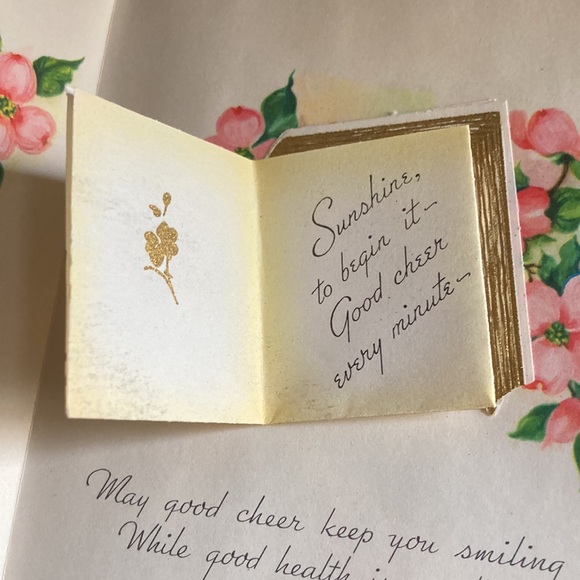 Sunshine,
to begin it–
Good cheer
every minute–
May good cheer keep you smiling
While good health